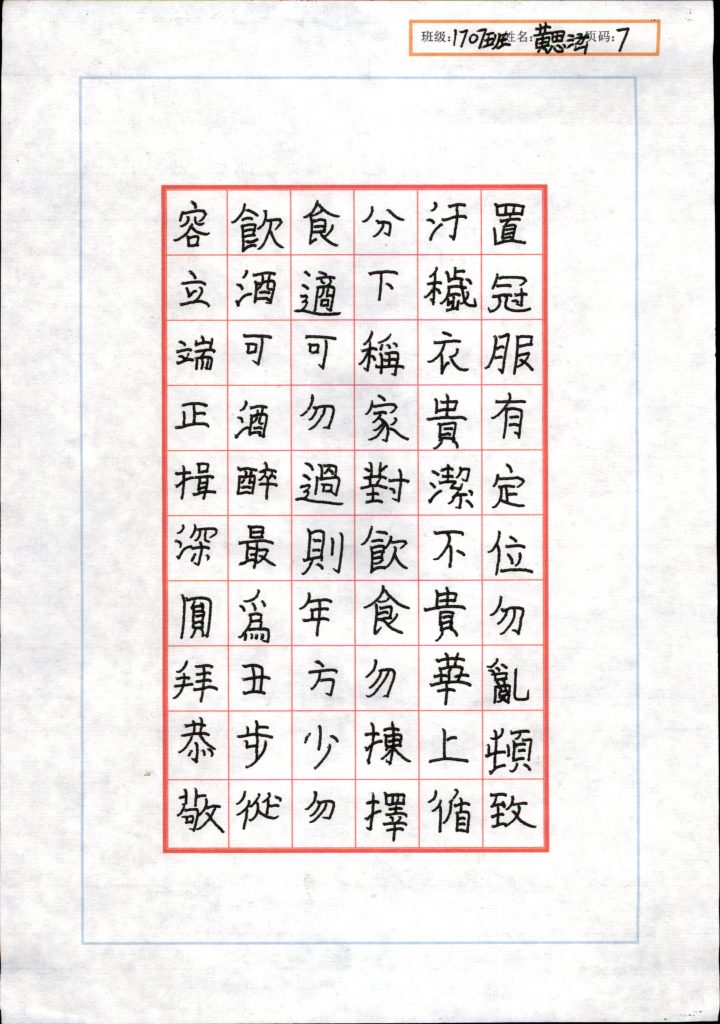 班级:1707班 姓名:黄思 页码:7
置冠服有定位勿亂頓致
汙穢衣貴潔不貴華上循
分下稱家對飲食勿揀擇
食適可勿過則年方少勿
飲酒可酒醉最爲丑步從
容立端正揖深圓拜恭敬